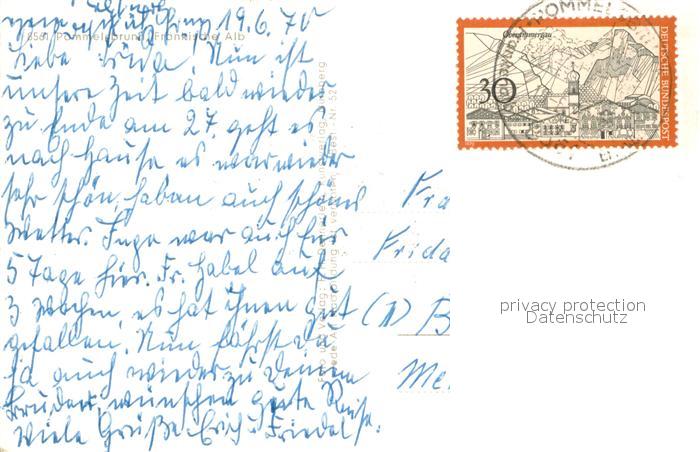 19.6.70
8561 Pommelsbrunn Fränkische Alb
Liebe Frieda! Nun ist
unsere Zeit bald wieder
zu Ende am 27. geht es
nach Hause es war wieder
sehr schön, haben auch schönes
Wetter. Inge war auch für
5 Tage hier. Fr. Habel auf
3 Wochen, es hat ihnen gut
gefallen. Nun fährst du
ja auch wieder zu Deinem
Bruder, wünschen gute Reise.
Viele Grüße Erich u Friedel
Fra
Frida
(1) B
Me
Oberammergau
30
DEUTSCHE BUNDESPOST
POMMELSBRUNN
privacy protection
Datenschutz